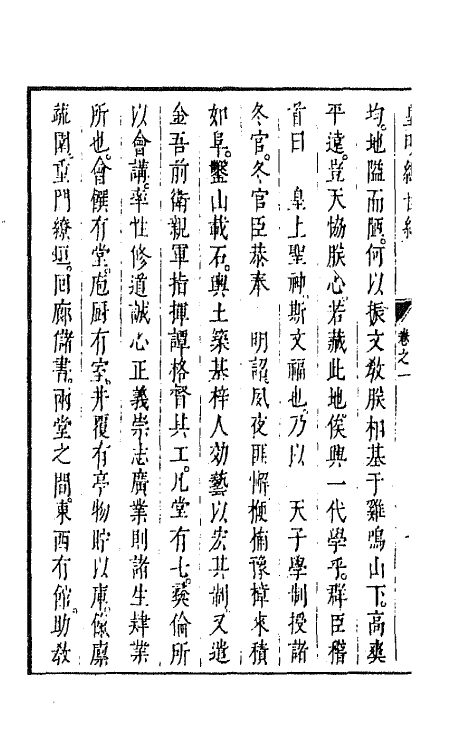 皇明經世編
卷之一
均。地隘而陋。何以振文敎朕相基于雞鳴山下。高爽
平遠。豈天協朕心。若藏此地俟興一代學乎。群臣稽
首曰　皇上聖神。斯文福也。乃以　天子學制授諸
冬官。冬官臣恭奉　明詔。夙夜匪懈楩楠豫樟來積
如阜。鑿山載石。輿土築基梓人効藝以宏其制。又遣
金吾前衛親軍指揮譚格督其工。凡堂有七。彝倫所
以會講。率性修道誠心正義崇志廣業則諸生肄業
所也。會饌有堂。庖厨有室。井覆有亭。物貯以庫。餼廩
疏圃。重門繚垣。回廊儲書。兩堂之間。東西有館。助敎